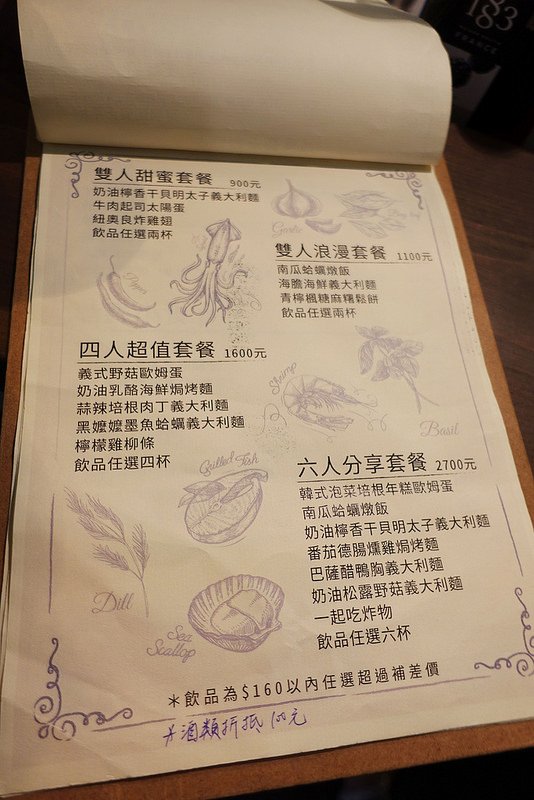 183
FRANCE
雙人甜蜜套餐 900元
奶油檸香干貝明太子義大利麵
牛肉起司太陽蛋
紐奧良炸雞翅
飲品任選兩杯
Garlic
雙人浪漫套餐 1100元
南瓜蛤蠣燉飯
海膽海鮮義大利麵
青檸楓糖麻糬鬆餅
飲品任選兩杯
四人超值套餐 1600元
義式野菇歐姆蛋
奶油乳酪海鮮焗烤麵
蒜辣培根肉丁義大利麵
黑嬤嬤墨魚蛤蠣義大利麵
檸檬雞柳條
飲品任選四杯
Shrimp
Basil
Grilled Fish
六人分享套餐 2700元
韓式泡菜培根年糕歐姆蛋
南瓜蛤蠣燉飯
奶油檸香干貝明太子義大利麵
番茄德腸燻雞焗烤麵
巴薩醋鴨胸義大利麵
奶油松露野菇義大利麵
一起吃炸物
飲品任選六杯
Dill
Sea
Scallop
＊飲品為$160以內任選超過補差價
*酒類折抵100元